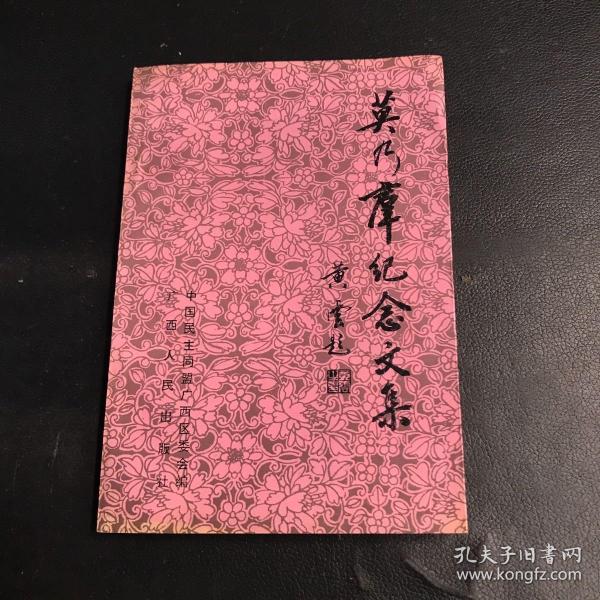 莫乃群纪念文集
黄云题
中国民主同盟广西区委会编
广西人民出版社
孔夫子旧书网
www.kongfz.com